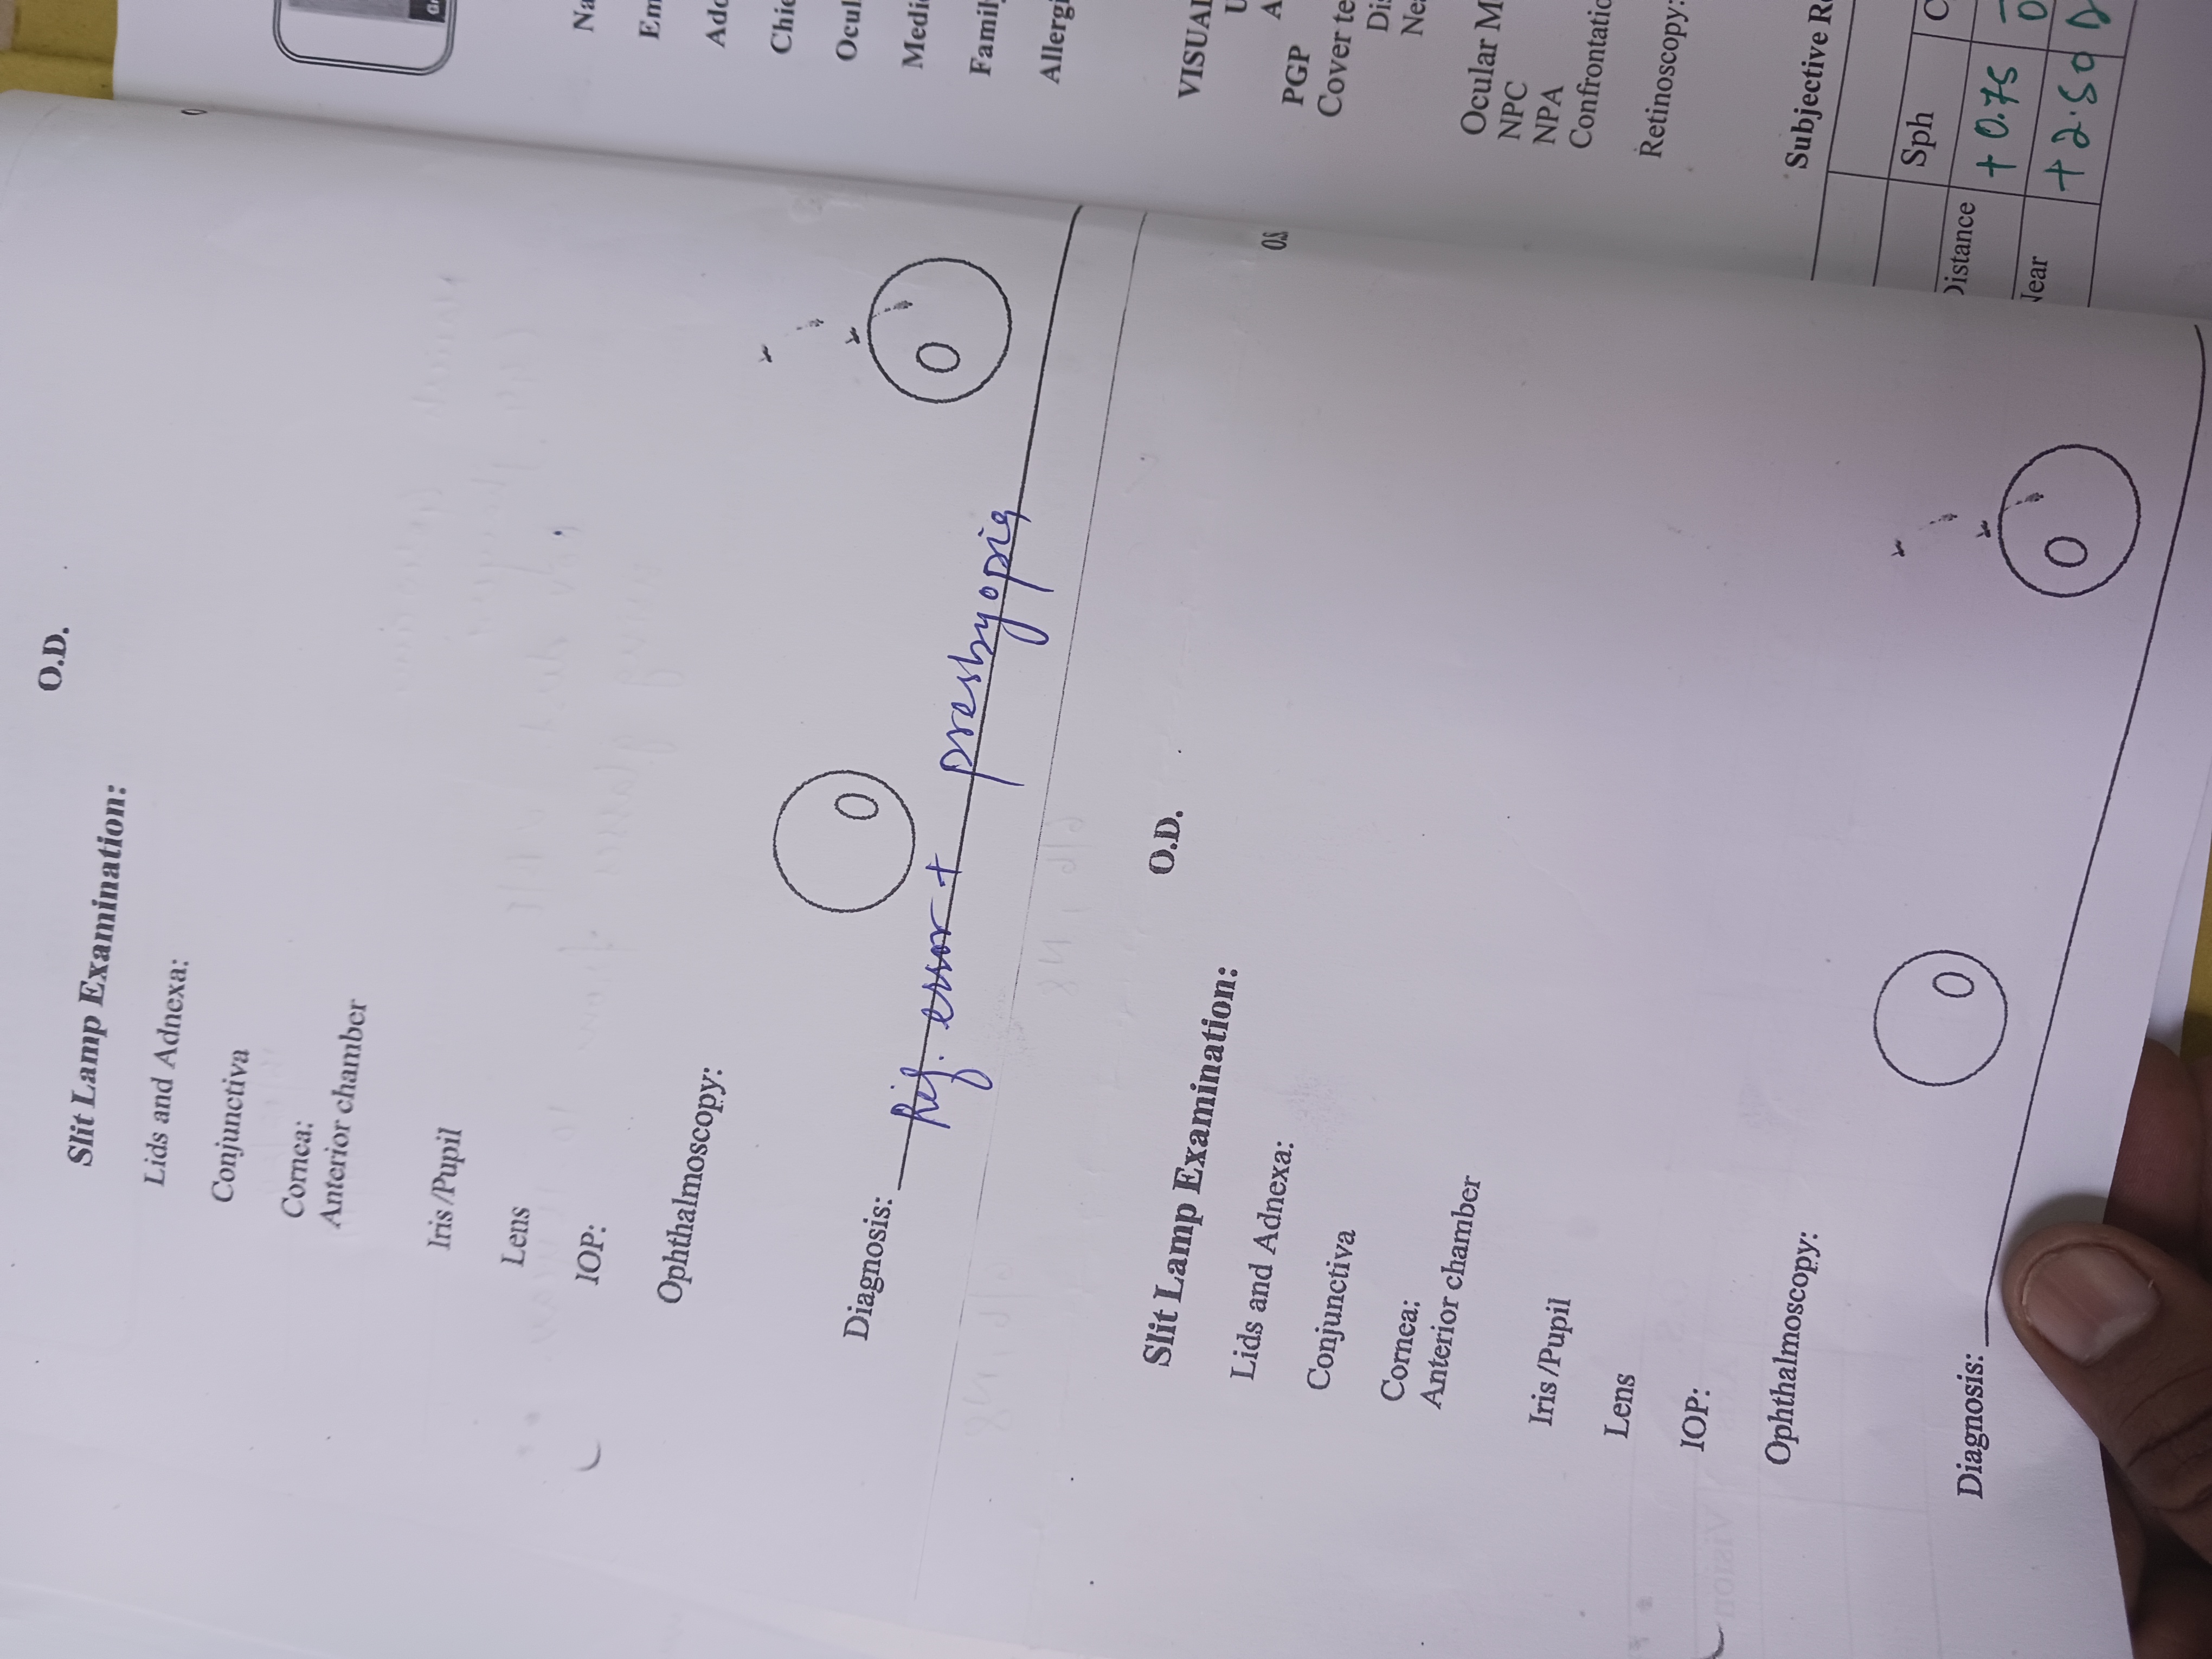 O.D.
Slit Lamp Examination:
Lids and Adnexa:
Conjunctiva
Cornea:
Anterior chamber
Iris /Pupil
Lens
IOP:
Ophthalmoscopy:
Diagnosis: Ref. error + presbyopia
O.D.
Slit Lamp Examination:
O.S.
Lids and Adnexa:
Conjunctiva
Cornea:
Anterior chamber
Iris /Pupil
Lens
IOP:
Ophthalmoscopy:
Diagnosis:
VISUAL
PGP
Cover te
Ocular M
NPC
NPA
Retinoscopy:
Subjective
Sph
Distance +0.75
Near +2.50